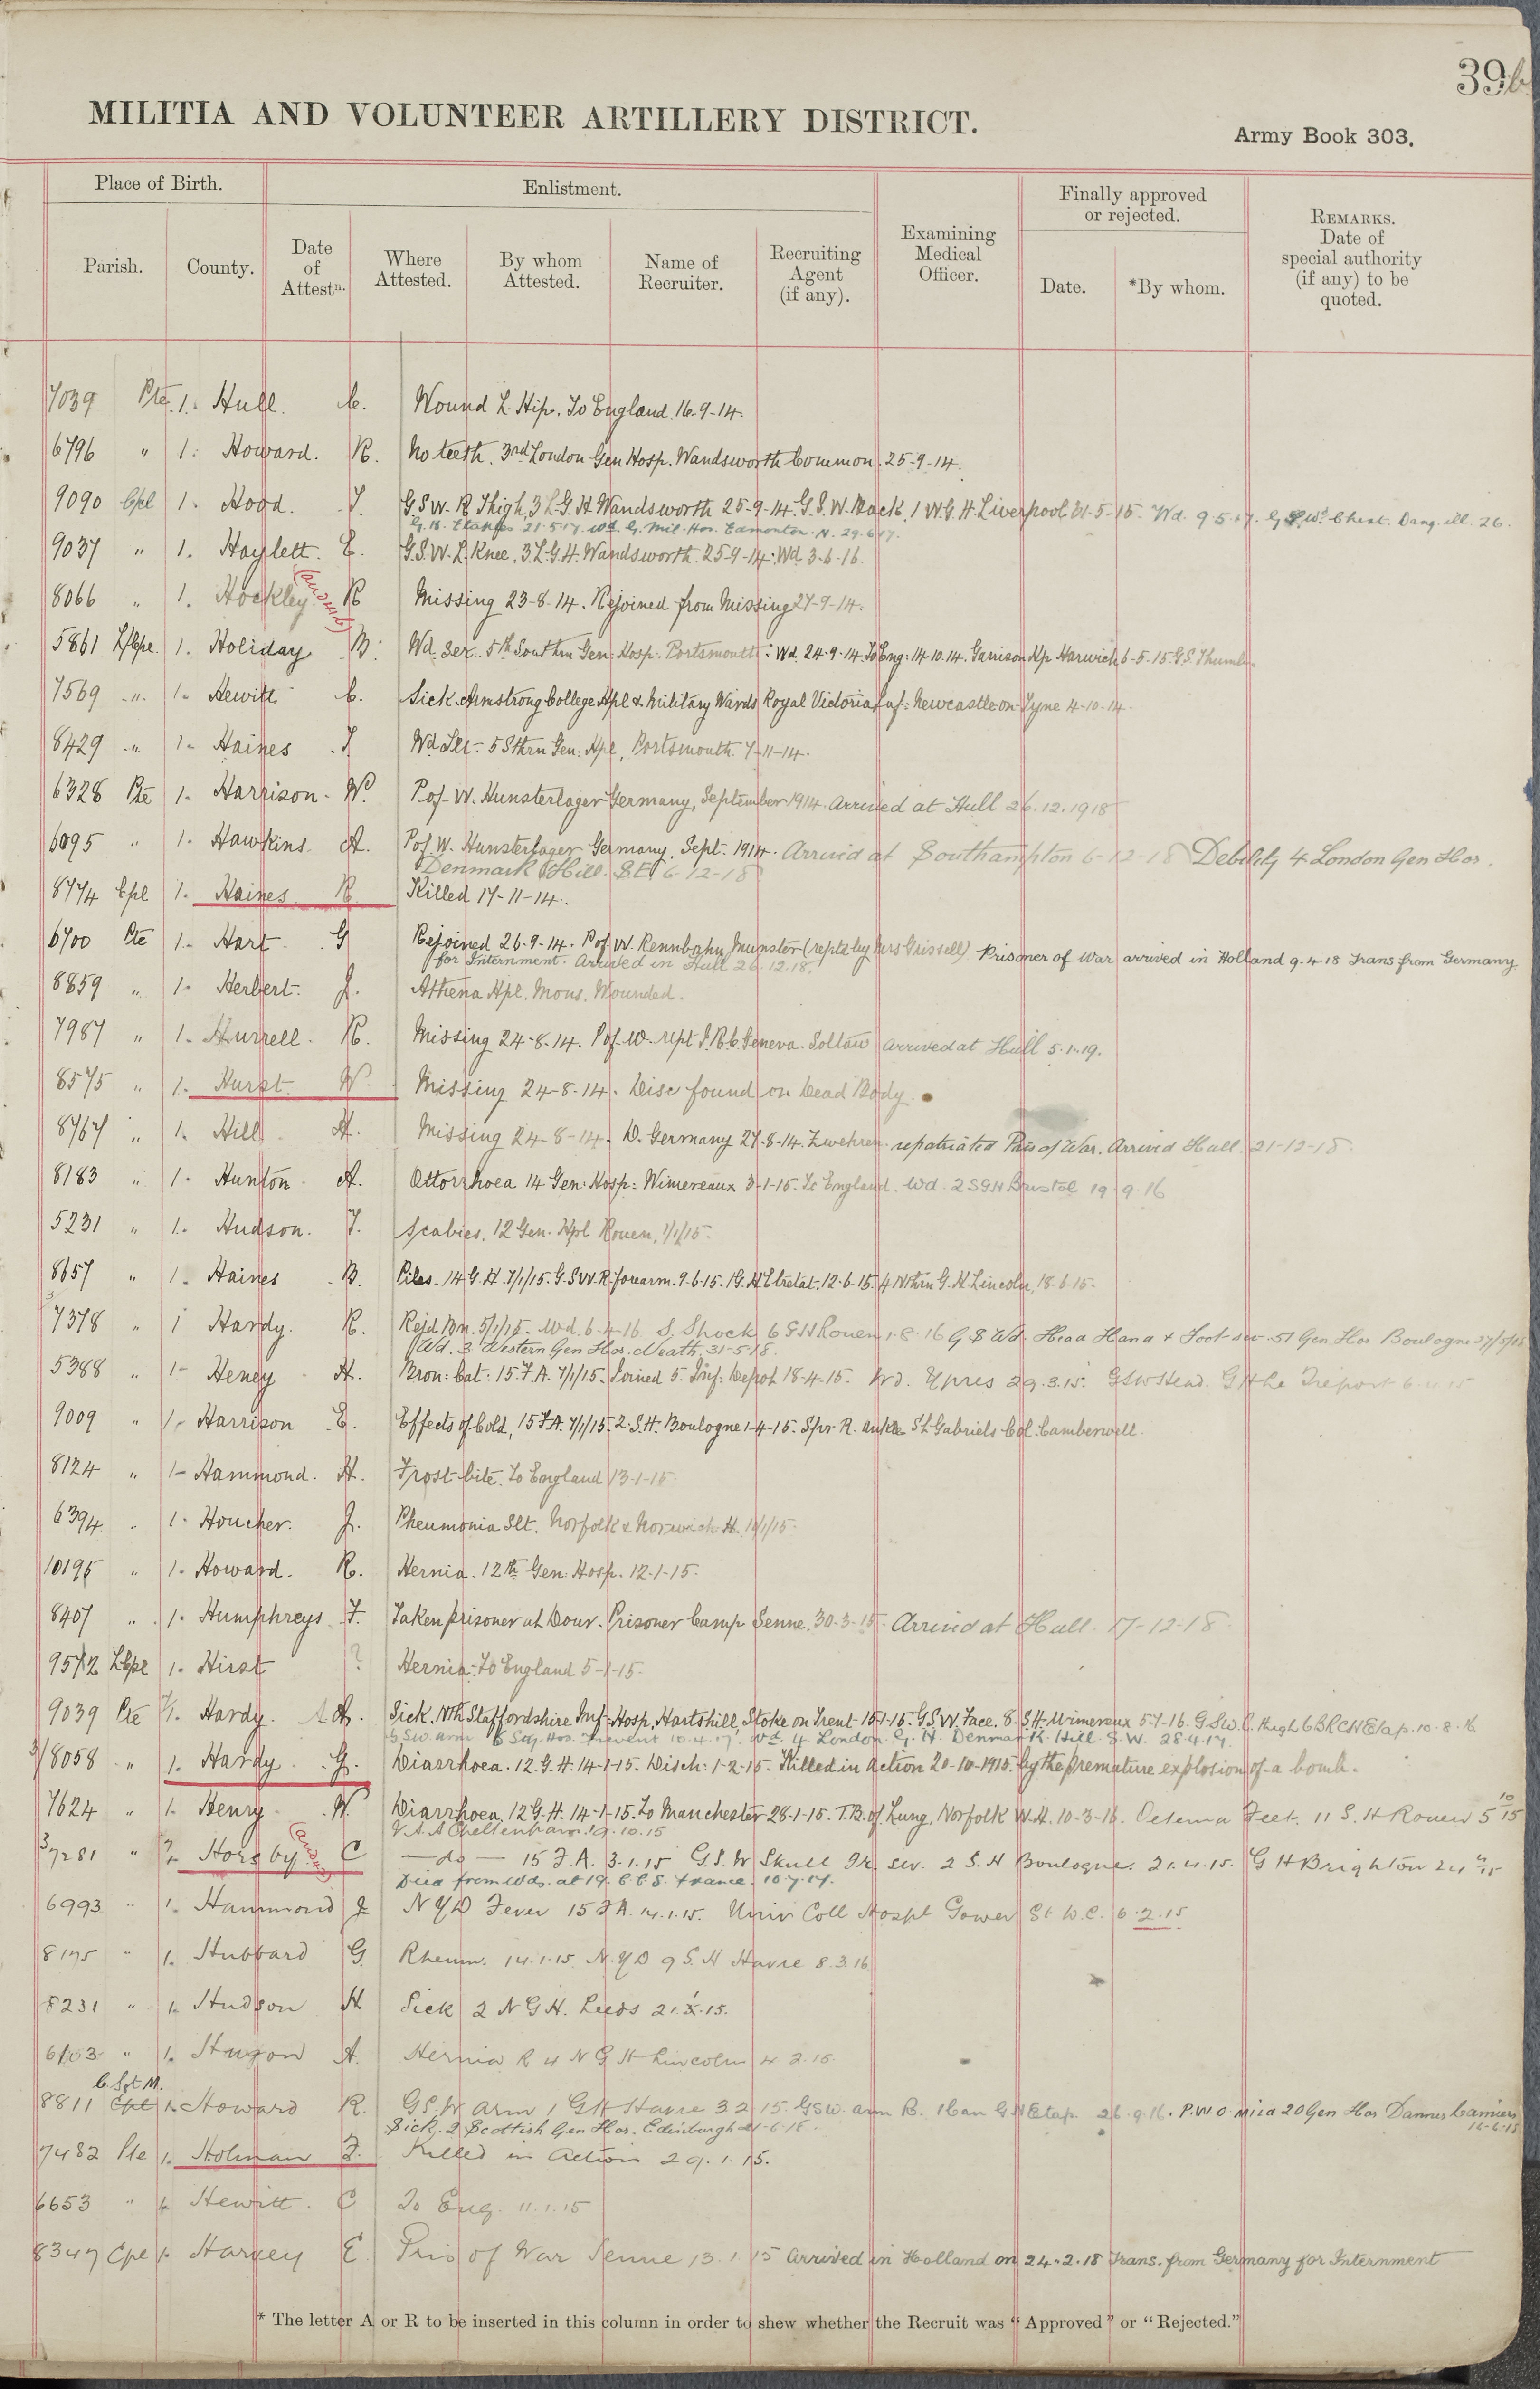 39b
MILITIA AND VOLUNTEER ARTILLERY DISTRICT.
Army Book 303.
Place of Birth.
Enlistment.
Finally approved
or rejected.
Parish.
County.
Date
of
Attestn.
Where
Attested.
By whom
Attested.
Name of
Recruiter.
Recruiting
Agent
(if any).
Examining
Medical
Officer.
Date.
*By whom.
REMARKS.
Date of
special authority
(if any) to be
quoted.
7039 Pte 1. Hull. C. Wound L. Hip. To England. 16-9-14.
6796 " 1. Howard. R. No teeth. 3rd London Gen Hosp. Wandsworth Common. 25-9-14.
9090 Cpl 1. Hood. T. G.S.W. R Thigh, 3 L.G.H Wandsworth 25-9-14. G.S.W. Back, 1 W.G.H Liverpool 21-5-15. Wd. 9.5.17. Chest. Dang. ill. 26.
G.H. Etaples 21.5.17. Wd. G. Mil. Hos. Edmonton. N. 29.6.17.
9037 " 1. Haylett. E. G.S.W. L. Knee, 3 L.G.H. Wandsworth. 25-9-14. Wd 3-6-16.
8066 " 1. Hockley R Missing 23-8-14. Rejoined from Missing 27-9-14.
5861 L/Cpl. 1. Holiday B. Wd Ser. 5th Southrn Gen: Hosp: Portsmouth: Wd. 24.9.14. To Eng: 14.10.14. Garrison Hp Harwich 6-5-15 G.S. Thumb
7569 " 1. Hewitt C. Sick. Armstrong College Hpl & Military Wards Royal Victoria Inf: Newcastle on Tyne 4-10-14.
8429 " 1. Haines T Wd Slt- 5 Sthrn Gen: Hpl, Portsmouth 7-11-14.
6328 Pte 1. Harrison W. P. of W. Munsterlager Germany, September 1914. Arrived at Hull 26.12.1918
6095 " 1. Hawkins A. P of W. Munsterlager Germany. Sept. 1914. Arrived at Southampton 6-12-18 Debility 4 London Gen Hos.
Denmark Hill. S.E. 6-12-18
8774 Cpl 1. Haines R. Killed 17-11-14.
6700 Pte 1. Hart G Rejoined 26-9-14. P of W. Rennbahn Munster (reptd by Mrs Grissell) Prisoner of War arrived in Holland 9.4.18 Trans from Germany
for Internment. Arrived in Hull 26.12.18.
8859 " 1. Herbert. J. Athena Hpl. Mons. Wounded.
7987 " 1. Hurrell. R. Missing 24-8-14. P of W. rept I.R.C. Geneva. Soltau arrived at Hull 5.1.19.
8575 " 1. Hurst W. Missing 24-8-14. Disc found on Dead Body.
8767 " 1. Hill H. Missing 24-8-14. W. Germany 27.8-14. Zwehren. repatriated Pris of War. Arrived Hull. 21-12-18.
8183 " 1. Hunton A. Ottorrhoea 14 Gen: Hosp: Wimereaux 3-1-15. To England. Wd. 2 S G H Bristol 19.9.16
5231 " 1. Hudson. F. Scabies. 12 Gen. Hpl Rouen, 1/1/15.
8657 " 1. Haines B. Piles. 14 G.H. 7/1/15. G.S.W. R. forearm. 9-6-15. 1 G.H Etretat. 12-6-15. 4 Nthrn G.H. Lincoln, 18-6-15.
7378 " 1 Hardy. R. Rejd Bn. 5/1/15. Wd. 6.4.16 S. Shock 6 G H Rouen 1.8.16 G S Wd. Head Hand & Foot 51 Gen Hos Boulogne
Wd. 3 Western Gen Hos. Neath 31-5-18.
5388 " 1- Heney H. Bron: Cat: 15. F.A. 7/1/15. Joined 5. Inf: Depot 18-4-15. Wd. Ypres 29.3.15. GSW Head. G H Le Treport
9009 " 1. Harrison E. Effects of Cold, 15 F.A. 7/1/15. 2. S.H. Boulogne 1-4-15. Spr R. ankle St Gabriels Col. Camberwell.
8124 " 1- Hammond. H. Frost bite. To England 13-1-15.
6394 " 1. Houcher. J. Pneumonia Slt. Norfolk & Norwich H. 11/1/15.
10195 " 1. Howard. R. Hernia. 12th Gen: Hosp. 12-1-15.
8407 " 1. Humphreys F. Taken prisoner at Dour. Prisoner Camp Senne. 30-3-15. Arrived at Hull. 17-12-18.
9572 LCpl 1. Hirst ? Hernia. To England 5-1-15.
9039 Pte 1. Hardy. A. Sick. Nth Staffordshire Inf: Hosp, Hartshill, Stoke on Trent 15-1-15. G.S.W. Face. 8. S.H. Wimereux 5-7-16. G.S.W. thigh 6 BRCH Etap. 10.8.16
G.S.W. arm Sty. Hos. Frevent 10.4.17. Wd. 4. London G. H. Denmark Hill. S.W. 28.4.17.
3/8058 " 1. Hardy G. Diarrhoea. 12. G.H. 14-1-15. Disch: 1-2-15. Killed in Action 20-10-1915. by the premature explosion of a bomb.
7624 " 1. Henry W. Diarrhoea. 12 G.H. 14-1-15. To Manchester 28-1-15. T.B. of Lung, Norfolk W.H. 10-3-16. Oetema Feet. 11 S.H Rouen 5 10 15
V.A.A Cheltenham. 19.10.15
3/7281 " Horsby C —do— 15 F.A. 3.1.15 G.S.W Skull Fr. sev. 2 S.H Boulogne. 21.4.15. G H Brighton
Died from wds. at 19. C.C.S. France. 10.7.17.
6993 " 1. Hammond J NYD Fever 15 F.A. 14.1.15. Univ Coll Hospl Gower St W.C. 6.2.15
8175 " 1. Hubbard G. Rheum. 14.1.15. N.Y.D 9 S.H Havre 8.3.16
8231 " 1. Hudson H Sick 2 N G H. Leeds
" 1. Hugon A. Hernia R 4 N G H Lincoln 4.2.15.
C. Sgt M.
8811 Cpl 1. Howard R. G.S.W arm 1 GH Havre 3 2 15. G.S.W. arm R. 1 Can G H Etap. 26.9.16. P.U.O. mild 20 Gen Hos Dannes Camiers
Sick. 2 Scottish Gen Hos. Edinburgh 21-6-18.
7482 Pte 1. Holman F. Killed in Action 29.1.15.
6653 " 1. Hewitt. C To Eng. 11.1.15
8347 Cpl 1. Harvey E. Pris of War Senne 13.1.15 Arrived in Holland on 24.2.18 Trans. from Germany for Internment
* The letter A or R to be inserted in this column in order to shew whether the Recruit was “Approved” or “Rejected.”